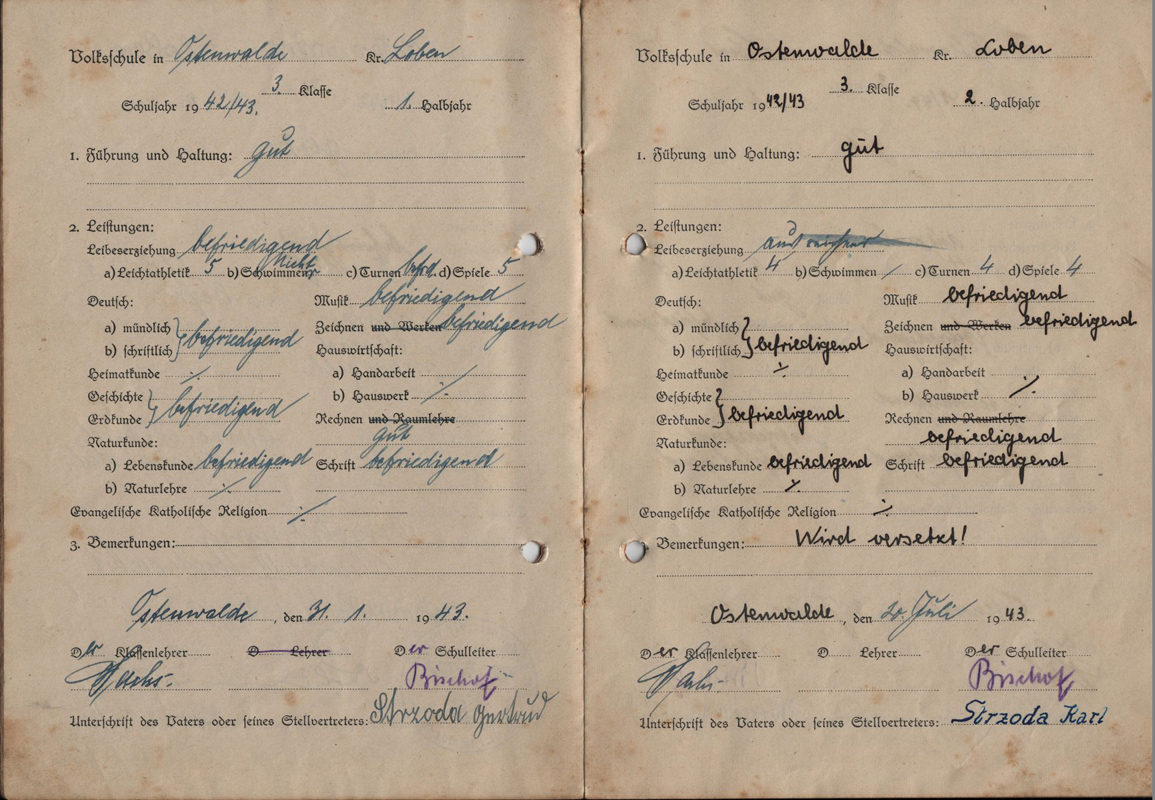 Volksschule in Ostenwalde Kr. Loben
3. Klasse
Schuljahr 19 42/43. 1. Halbjahr
1. Führung und Haltung: gut
2. Leistungen:
Leibeserziehung befriedigend
a) Leichtathletik 5 b) Schwimmen nicht c) Turnen bfrd. d) Spiele 5
Deutsch: Musik befriedigend
a) mündlich } befriedigend Zeichnen und Werken befriedigend
b) schriftlich Hauswirtschaft:
Heimatkunde ./. a) Handarbeit /
Geschichte } befriedigend b) Hauswerk ./.
Erdkunde Rechnen und Raumlehre
Naturkunde: gut
a) Lebenskunde befriedigend Schrift befriedigend
b) Naturlehre ./.
Evangelische Katholische Religion ./.
3. Bemerkungen:
Ostenwalde, den 31. 1. 19 43.
Der Klassenlehrer D Lehrer Der Schulleiter
Bischof
Unterschrift des Vaters oder seines Stellvertreters: Strzoda Gertrud
Volksschule in Ostenwalde Kr. Loben
3. Klasse
Schuljahr 19 42/43 2. Halbjahr
1. Führung und Haltung: gut
2. Leistungen:
Leibeserziehung
a) Leichtathletik 4 b) Schwimmen / c) Turnen 4 d) Spiele 4
Deutsch: Musik befriedigend
a) mündlich } befriedigend Zeichnen und Werken befriedigend
b) schriftlich Hauswirtschaft:
Heimatkunde ./. a) Handarbeit
Geschichte } befriedigend b) Hauswerk ./.
Erdkunde Rechnen und Raumlehre
Naturkunde: befriedigend
a) Lebenskunde befriedigend Schrift befriedigend
b) Naturlehre ./.
Evangelische Katholische Religion ./.
Bemerkungen: Wird versetzt!
Ostenwalde, den 20. Juli 19 43.
Der Klassenlehrer D Lehrer Der Schulleiter
Bischof
Unterschrift des Vaters oder seines Stellvertreters: Strzoda Karl